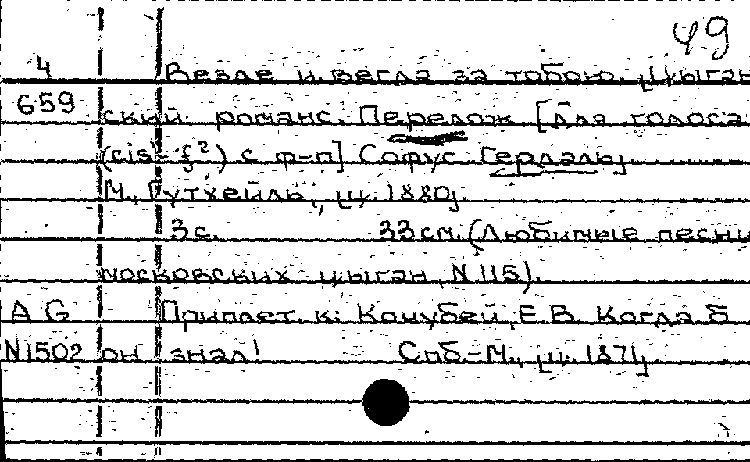 49
4 Везде и всегда за тобою. Цыган
659 ский романс. Перелож. [для голоса
(cis¹-f²) с ф-п] Софус Гердаль,
М., Гутхейль, ц. 1880г.
3 с. 33 см. (Любимые песни
московских цыган, N 115).
AG Приплет. к: Кочубей, Е.В. Когда б
N1502 он знал! Спб.-М., ц. 1871